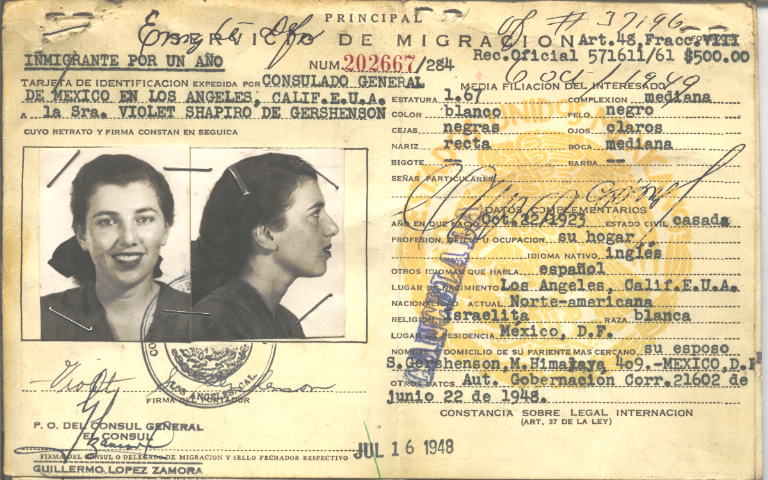 PRINCIPAL
SERVICIO DE MIGRACION
of # 37196
Art.48, Fracc.VIII
INMIGRANTE POR UN AÑO
NUM. 202667/284
Rec.Oficial 571611/61 $500.00
TARJETA DE IDENTIFICACION EXPEDIDA POR CONSULADO GENERAL
DE MEXICO EN LOS ANGELES, CALIF.E.U.A.
A la Sra. VIOLET SHAPIRO DE GERSHENSON
CUYO RETRATO Y FIRMA CONSTAN EN SEGUIDA
FIRMA DEL PORTADOR
P. O. DEL CONSUL GENERAL
EL CONSUL
FIRMA DEL CONSUL O DELEGADO DE MIGRACION Y SELLO FECHADOR RESPECTIVO
GUILLERMO LOPEZ ZAMORA
JUL 16 1948
LOS ANGELES, CAL.
MEDIA FILIACION DEL INTERESADO
ESTATURA 1.67 COMPLEXION mediana
COLOR blanco PELO negro
CEJAS negras OJOS claros
NARIZ recta BOCA mediana
BIGOTE -- BARBA --
SEÑAS PARTICULARES
DATOS COMPLEMENTARIOS
AÑO EN QUE NACIO Oct.22/1923 ESTADO CIVIL casada
PROFESION, OFICIO U OCUPACION su hogar
IDIOMA NATIVO inglés
OTROS IDIOMAS QUE HABLA español
LUGAR DE NACIMIENTO Los Angeles, Calif.E.U.A.
NACIONALIDAD ACTUAL Norte-americana
RELIGION Israelita RAZA blanca
LUGAR DE RESIDENCIA México, D.F.
NOMBRE Y DOMICILIO DE SU PARIENTE MAS CERCANO su esposo
S.Gershenson,M.Himalaya 409.-MEXICO,D.F
OTROS DATOS Aut. Gobernación Corr.21602 de
junio 22 de 1948.
CONSTANCIA SOBRE LEGAL INTERNACION
(ART. 37 DE LA LEY)